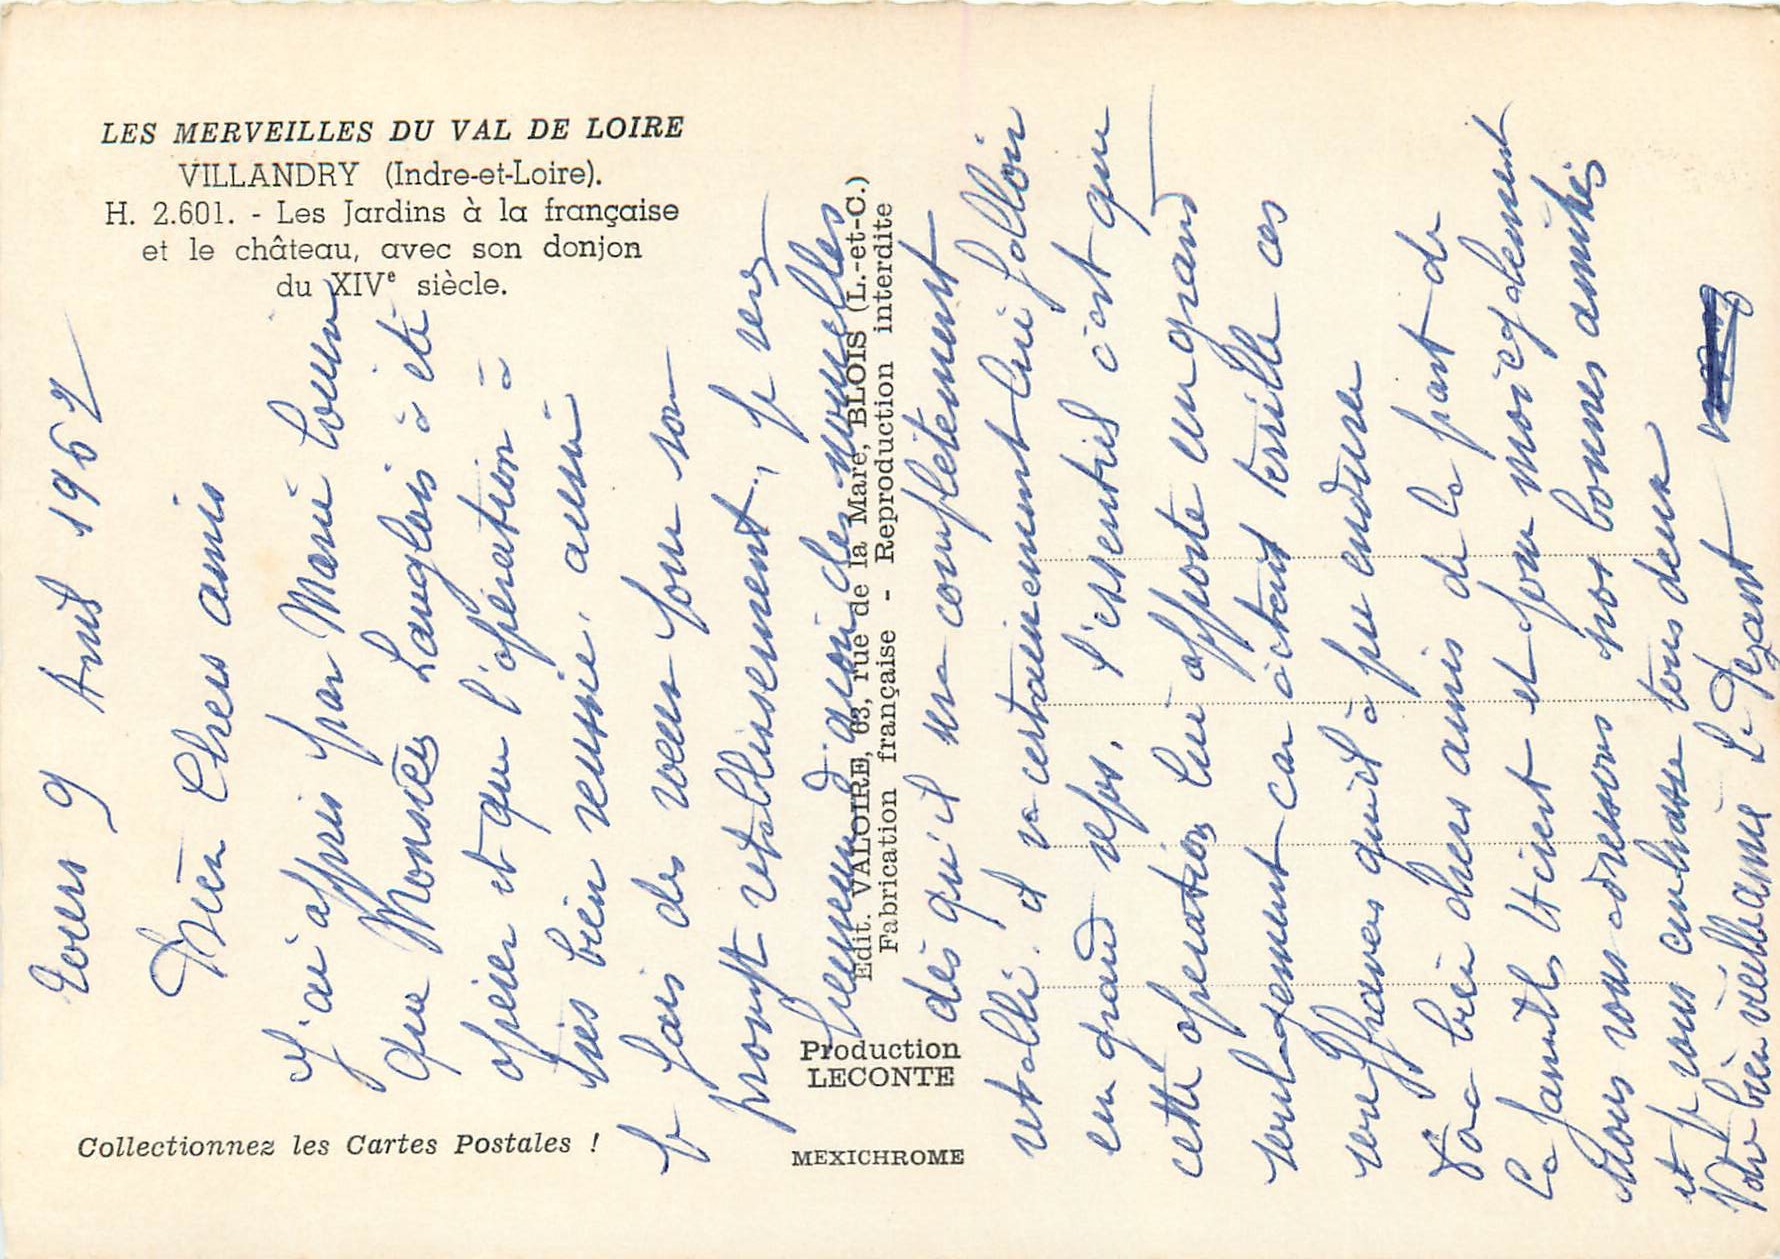 LES MERVEILLES DU VAL DE LOIRE
VILLANDRY (Indre-et-Loire).
H. 2.601. - Les Jardins à la française
et le château, avec son donjon
du XIVe siècle.
Collectionnez les Cartes Postales !
Production
LECONTE
MEXICHROME
Edit. VALOIRE, 63, rue de la Mare, BLOIS (L.-et-C.)
Fabrication française - Reproduction interdite
Tours 9 Avril 1967
Bien Chers amis
J'ai appris par Marie
que Monsieur Langlois à été
opérer et que l'opération à
très bien reussie, aussi
je fais des voeux pour son
prompt retablissement, je
des nouvelles
dès qu'il sera complètement
retabli. il va certainement lui falloir
un grand repos. l'essentiel c'est que
cette operation lui apporte un grand
soulagement car c'etait terrible ces
souffrances quil à pu endurer
bien chers amis de la part de
la famille Etient et pour moi egalement
Nous vous adressons nos bonnes amitiés
et je vous embrasse tous deux
Votre bien vieille amie Le Pezant